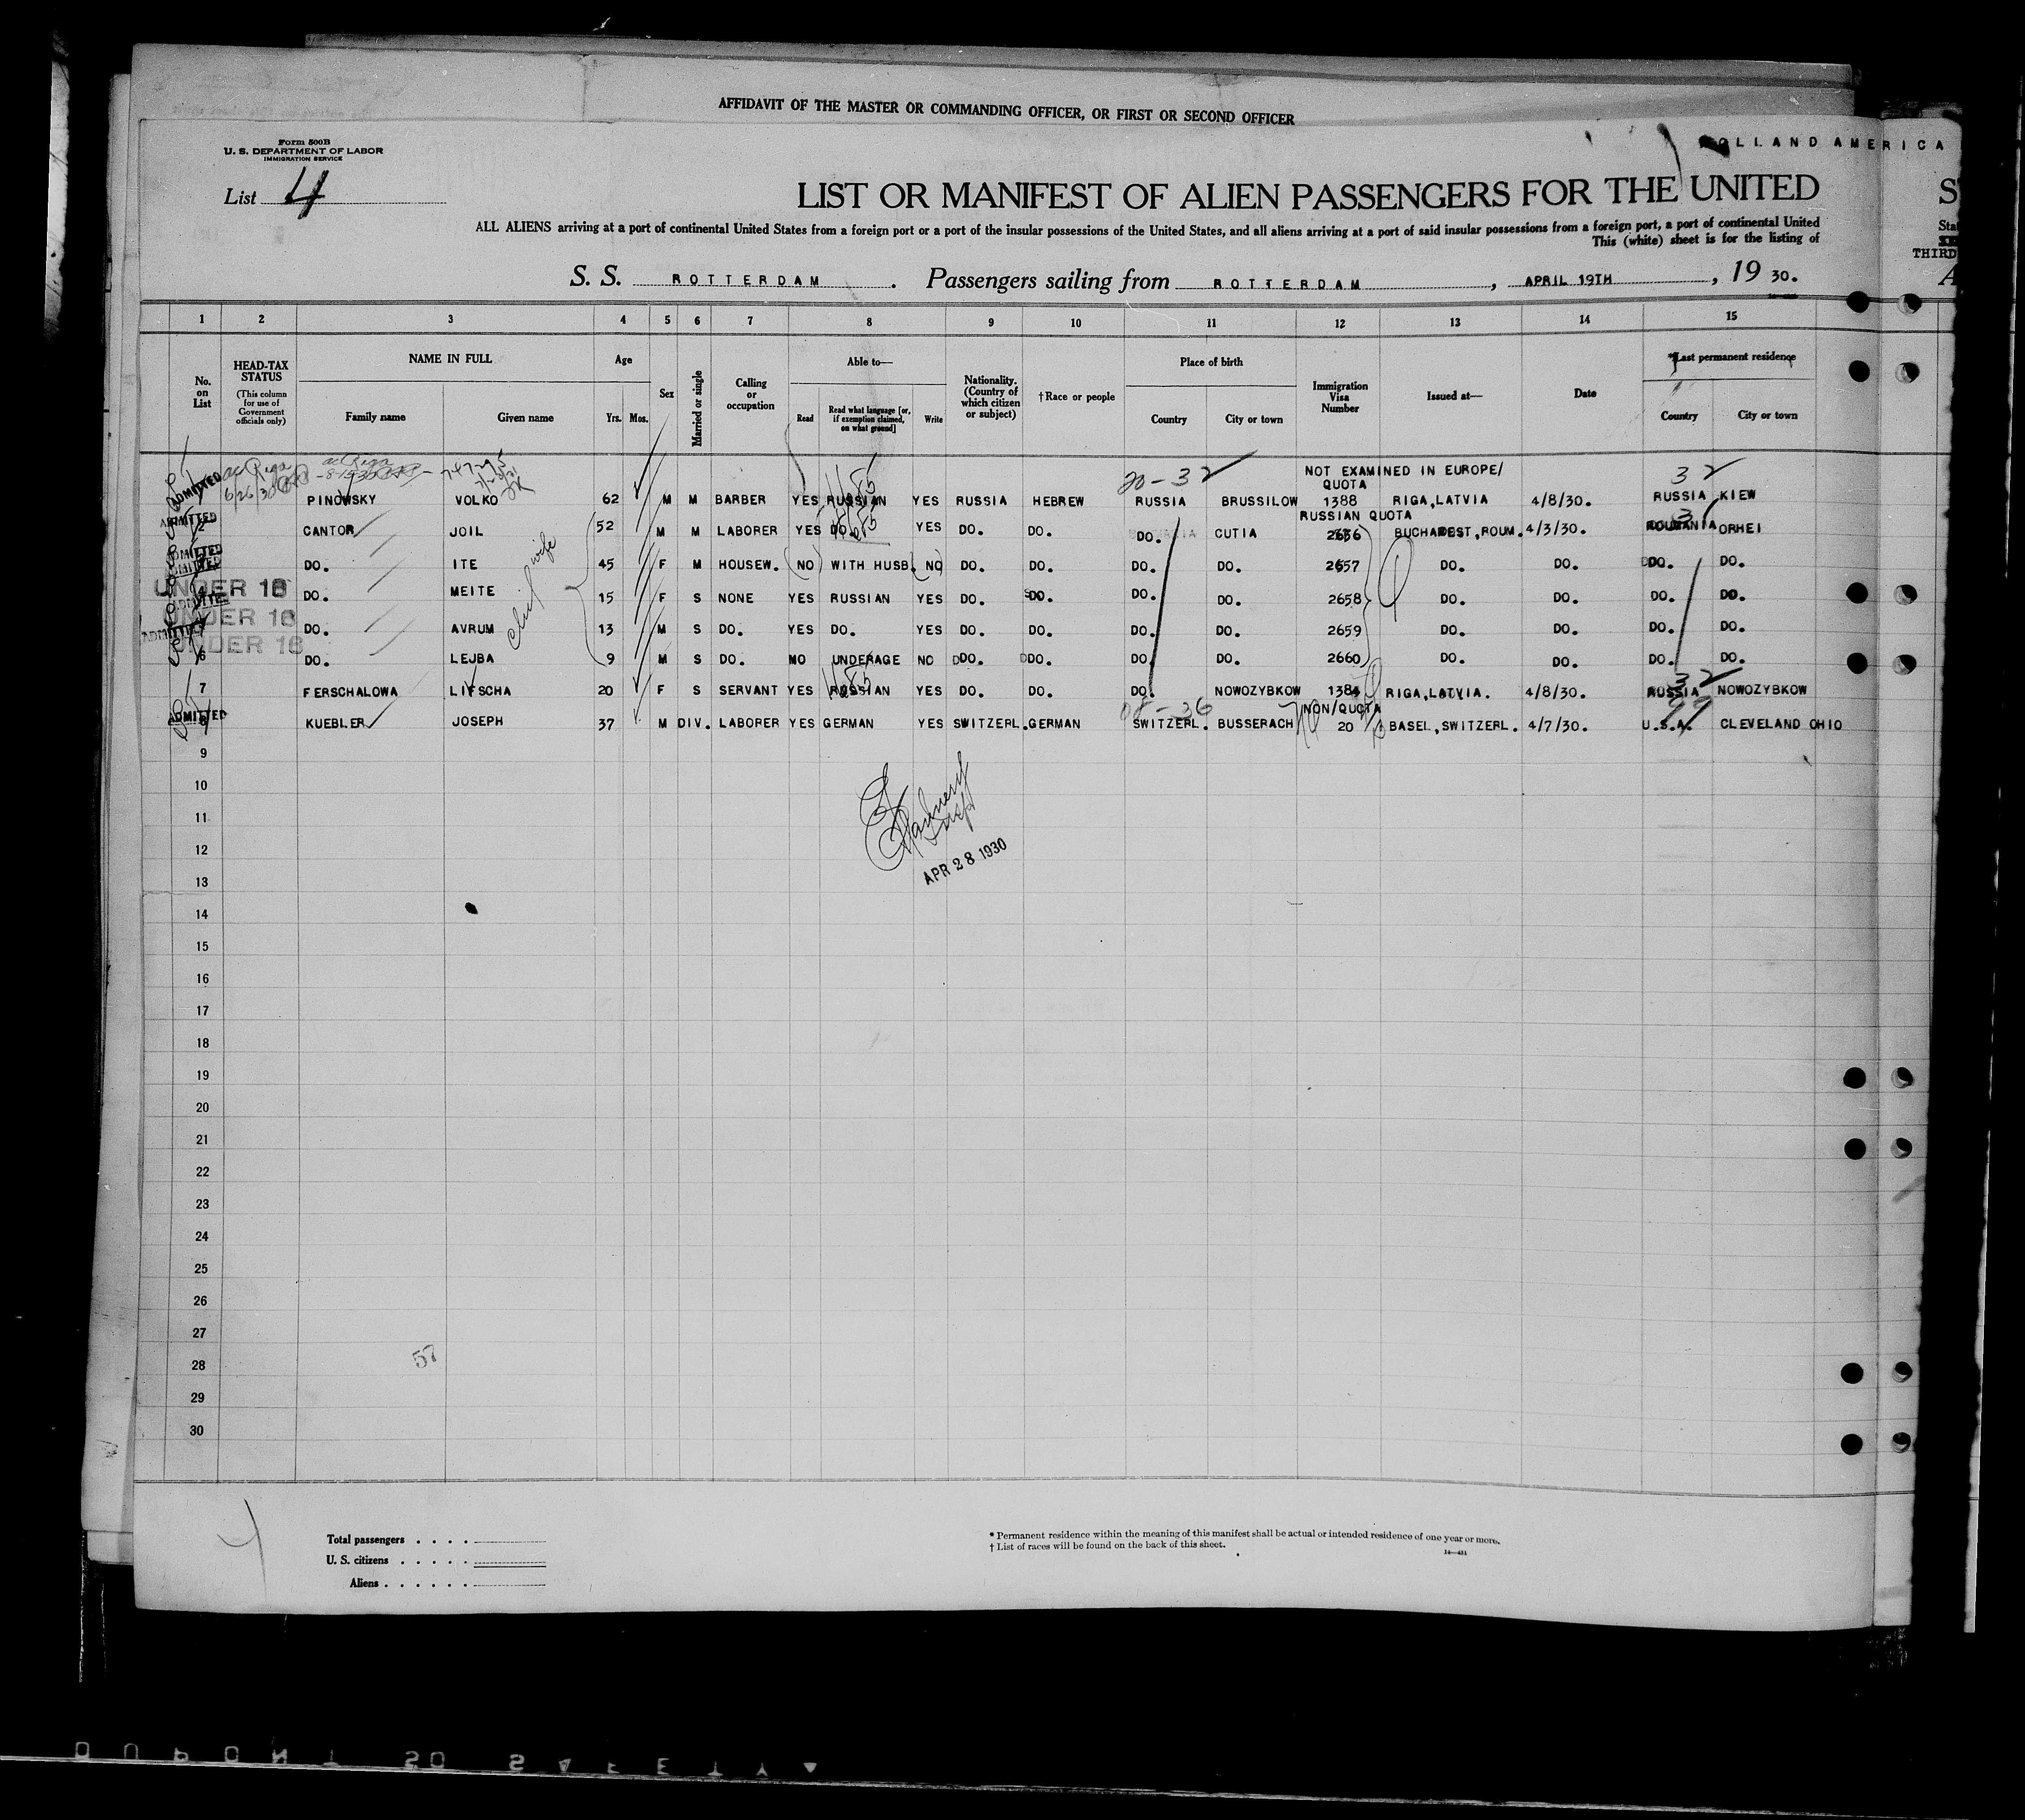 AFFIDAVIT OF THE MASTER OR COMMANDING OFFICER, OR FIRST OR SECOND OFFICER
Form 500B
U. S. DEPARTMENT OF LABOR
IMMIGRATION SERVICE
HOLLAND AMERICA
List 4
LIST OR MANIFEST OF ALIEN PASSENGERS FOR THE UNITED
ALL ALIENS arriving at a port of continental United States from a foreign port or a port of the insular possessions of the United States, and all aliens arriving at a port of said insular possessions from a foreign port, a port of continental United
This (white) sheet is for the listing of
THIRD
S. S. ROTTERDAM . Passengers sailing from ROTTERDAM , APRIL 19TH , 19 30.
1 2 3 4 5 6 7 8 9 10 11 12 13 14 15
No. on List
HEAD-TAX STATUS
(This column for use of Government officials only)
NAME IN FULL
Family name Given name
Age
Yrs. Mos.
Sex
Married or single
Calling or occupation
Able to—
Read Read what language [or, if exemption claimed, on what ground] Write
Nationality. (Country of which citizen or subject)
†Race or people
Place of birth
Country City or town
Immigration Visa Number
Issued at—
Date
*Last permanent residence
Country City or town
20-32 NOT EXAMINED IN EUROPE/ 32
QUOTA
ADMITTED PINOWSKY VOLKO 62 M M BARBER YES RUSSIAN YES RUSSIA HEBREW RUSSIA BRUSSILOW 1388 RIGA,LATVIA 4/8/30. RUSSIA KIEW
RUSSIAN QUOTA
ADMITTED 2 CANTOR JOIL 52 M M LABORER YES DO. YES DO. DO. DO. CUTIA 2656 BUCHAREST,ROUM. 4/3/30. ROUMANIA ORHEI
ADMITTED DO. ITE 45 F M HOUSEW. (NO) WITH HUSB. (NO) DO. DO. DO. DO. 2657 DO. DO. DO. DO.
UNDER 16 ADMITTED DO. MEITE 15 F S NONE YES RUSSIAN YES DO. DO. DO. DO. 2658 DO. DO. DO. DO.
UNDER 16 ADMITTED DO. AVRUM 13 M S DO. YES DO. YES DO. DO. DO. DO. 2659 DO. DO. DO. DO.
UNDER 16 6 DO. LEJBA 9 M S DO. NO UNDERAGE NO DO. DO. DO. DO. 2660 DO. DO. DO. DO.
7 FERSCHALOWA LIFSCHA 20 F S SERVANT YES RUSSIAN YES DO. DO. DO. NOWOZYBKOW 1384 RIGA,LATVIA. 4/8/30. RUSSIA NOWOZYBKOW
08-36 NON/QUOTA 99
ADMITTED 8 KUEBLER JOSEPH 37 M DIV. LABORER YES GERMAN YES SWITZERL. GERMAN SWITZERL. BUSSERACH 20 BASEL,SWITZERL. 4/7/30. U.S.A. CLEVELAND OHIO
9
10
11
12
APR 28 1930
13
14
15
16
17
18
19
20
21
22
23
24
25
26
27
57
28
29
30
Total passengers
U. S. citizens
Aliens
* Permanent residence within the meaning of this manifest shall be actual or intended residence of one year or more.
† List of races will be found on the back of this sheet.
14—431
DUPONT SO SAFETY